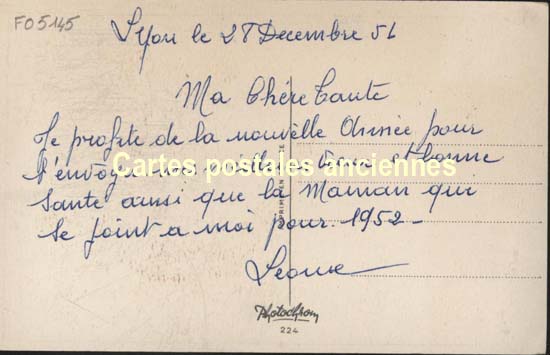 FO5145
Lyon le 28 Decembre 51
Ma Chère Tante
Je profite de la nouvelle Année pour
t'envoyer mes meilleurs vœux et bonne
Cartes postales anciennes
santé ainsi que la Maman qui
se joint a moi pour 1952 -
Leone
Photochrom
224